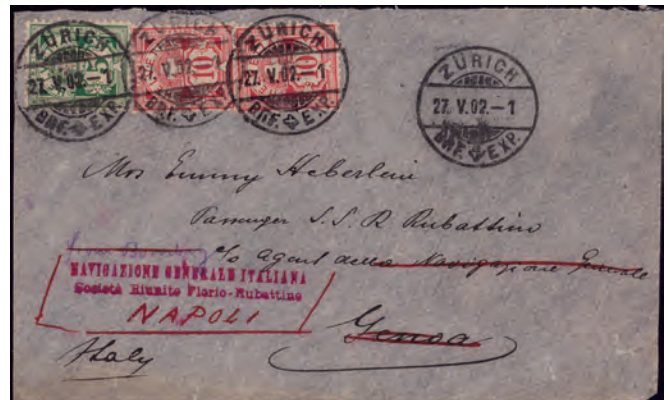 ZÜRICH
27. V. 02. – 1
BRF. EXP.
ZÜRICH
27. V. 02. – 1
BRF. EXP.
ZÜRICH
27. V. 02. – 1
BRF. EXP.
ZÜRICH
27. V. 02. – 1
BRF. EXP.
5
10
10
Mrs Emmy Heberlein
Passenger S. S. R Rubattino
from Bombay
c/o Agent della Navigazione Generale
NAVIGAZIONE GENERALE ITALIANA
Società Riunite Florio-Rubattino
NAPOLI
Genoa
Italy